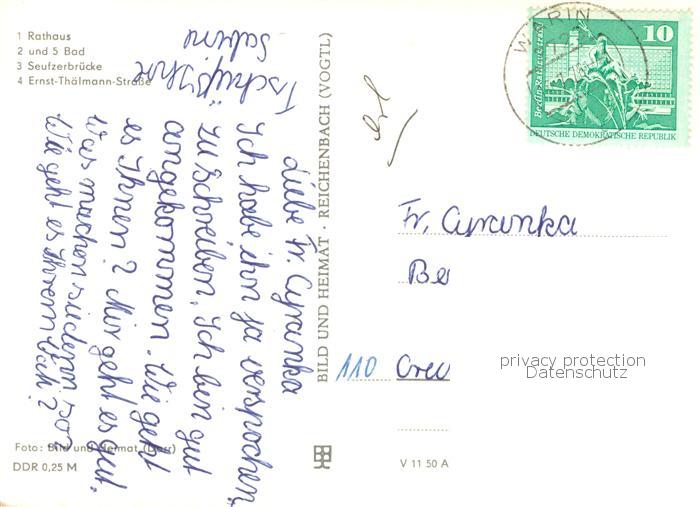 1 Rathaus
2 und 5 Bad
3 Seufzerbrücke
4 Ernst-Thälmann-Straße
Liebe Fr. Cyranka
Ich habe ihn ja versprochen,
zu schreiben. Ich bin gut
angekommen. Wie geht
es Ihnen? Mir geht es gut.
Was machen
Wie geht es Ihrem
Tschüß Ihre
Sabine
Foto: Bild und Heimat (Darr)
DDR 0,25 M
BILD UND HEIMAT · REICHENBACH (VOGTL)
V 11 50 A
WARIN
Berlin-Rathausstraße
10
DEUTSCHE DEMOKRATISCHE REPUBLIK
Fr. Cyranka
Be
110
privacy protection
Datenschutz